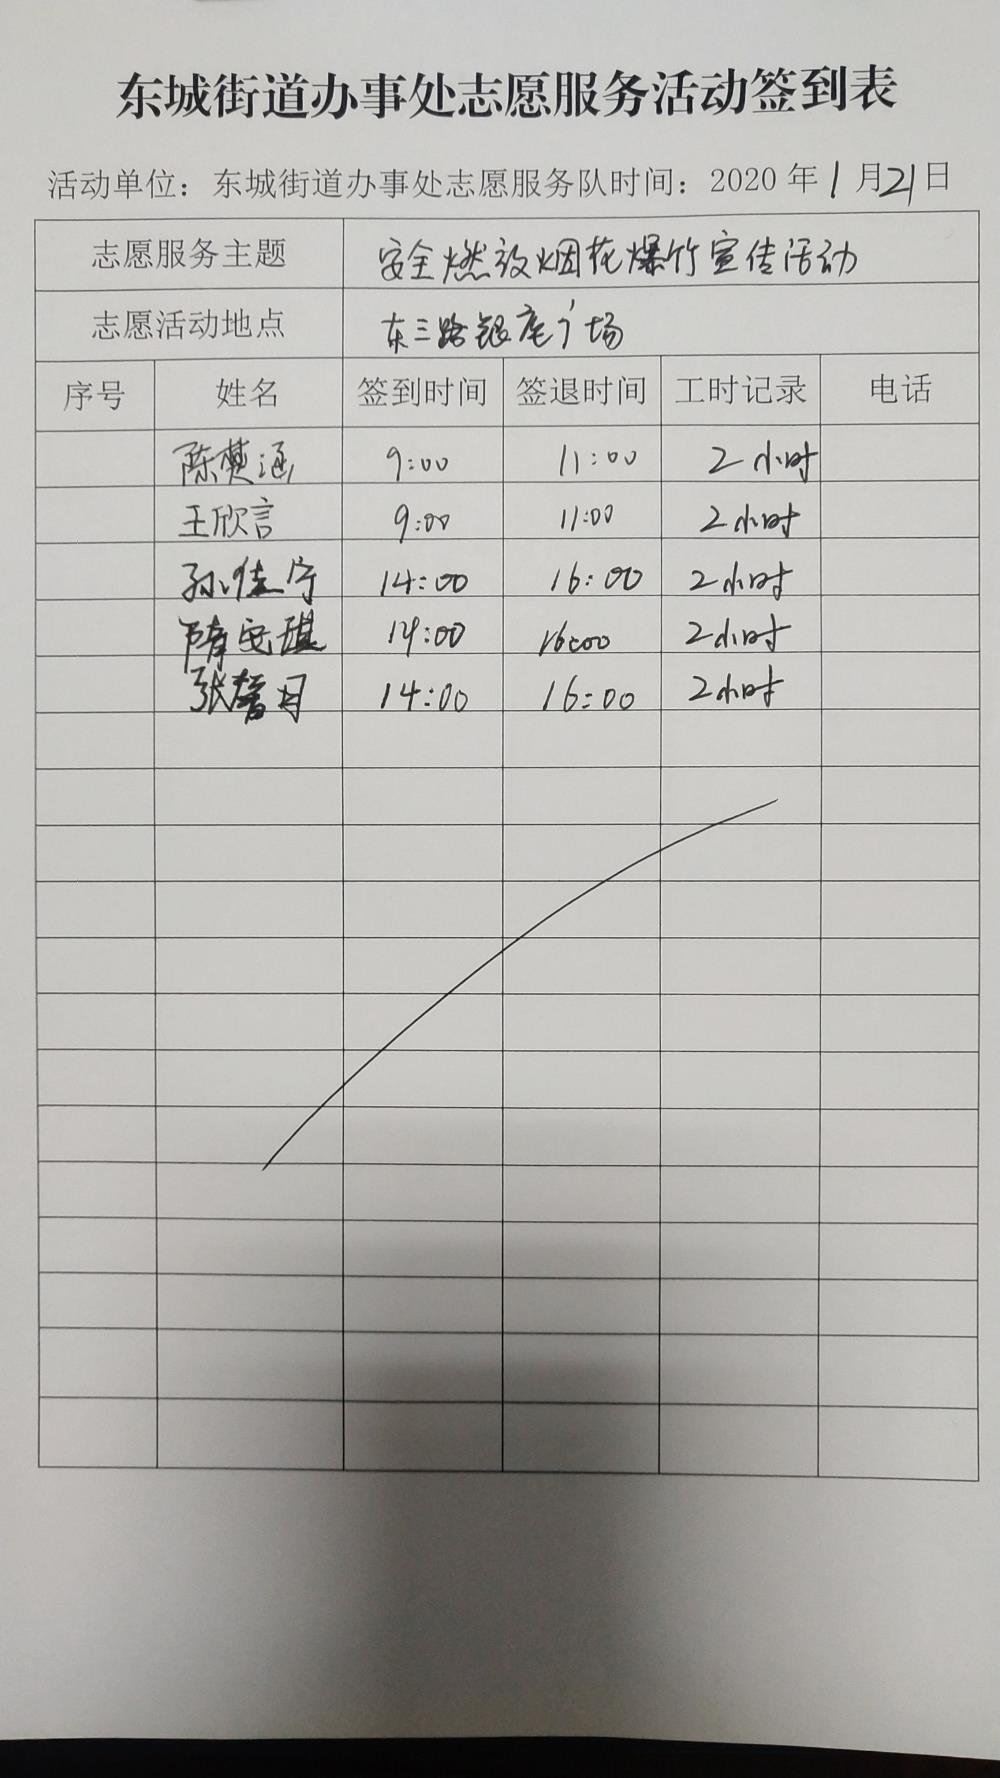 东城街道办事处志愿服务活动签到表
活动单位：东城街道办事处志愿服务队时间：2020 年 1 月 21 日
志愿服务主题 安全燃放烟花爆竹宣传活动
志愿活动地点 东三路银座广场
序号 姓名 签到时间 签退时间 工时记录 电话
陈樊涵 9:00 11:00 2小时
王欣言 9:00 11:00 2小时
孙佳宁 14:00 16:00 2小时
隋安琪 14:00 16:00 2小时
张 月 14:00 16:00 2小时